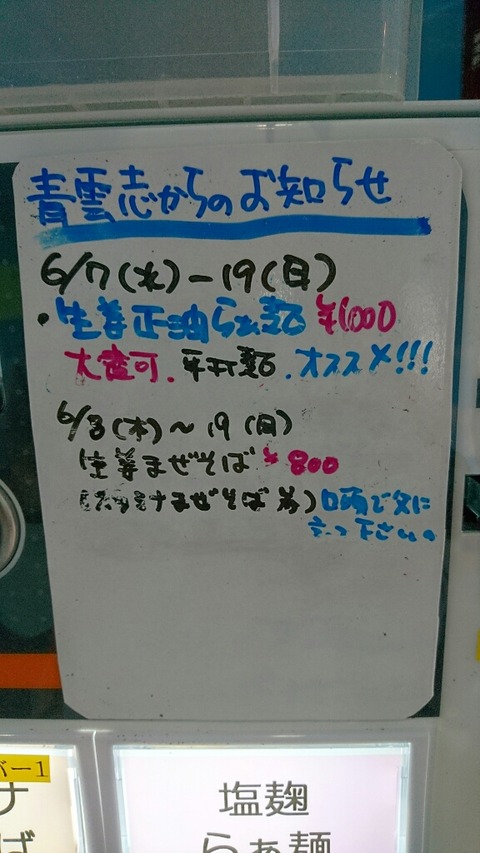 青雲志からのお知らせ
6/7(水)-19(日)
・生姜正油らぁ麺 ¥1000
大盛可.平打麺.オススメ!!!
6/8(木)〜19(日)
生姜まぜそば ¥800
まぜそば券)口頭で
下さい。
バー1
ナ
ば
塩麹
らぁ麺